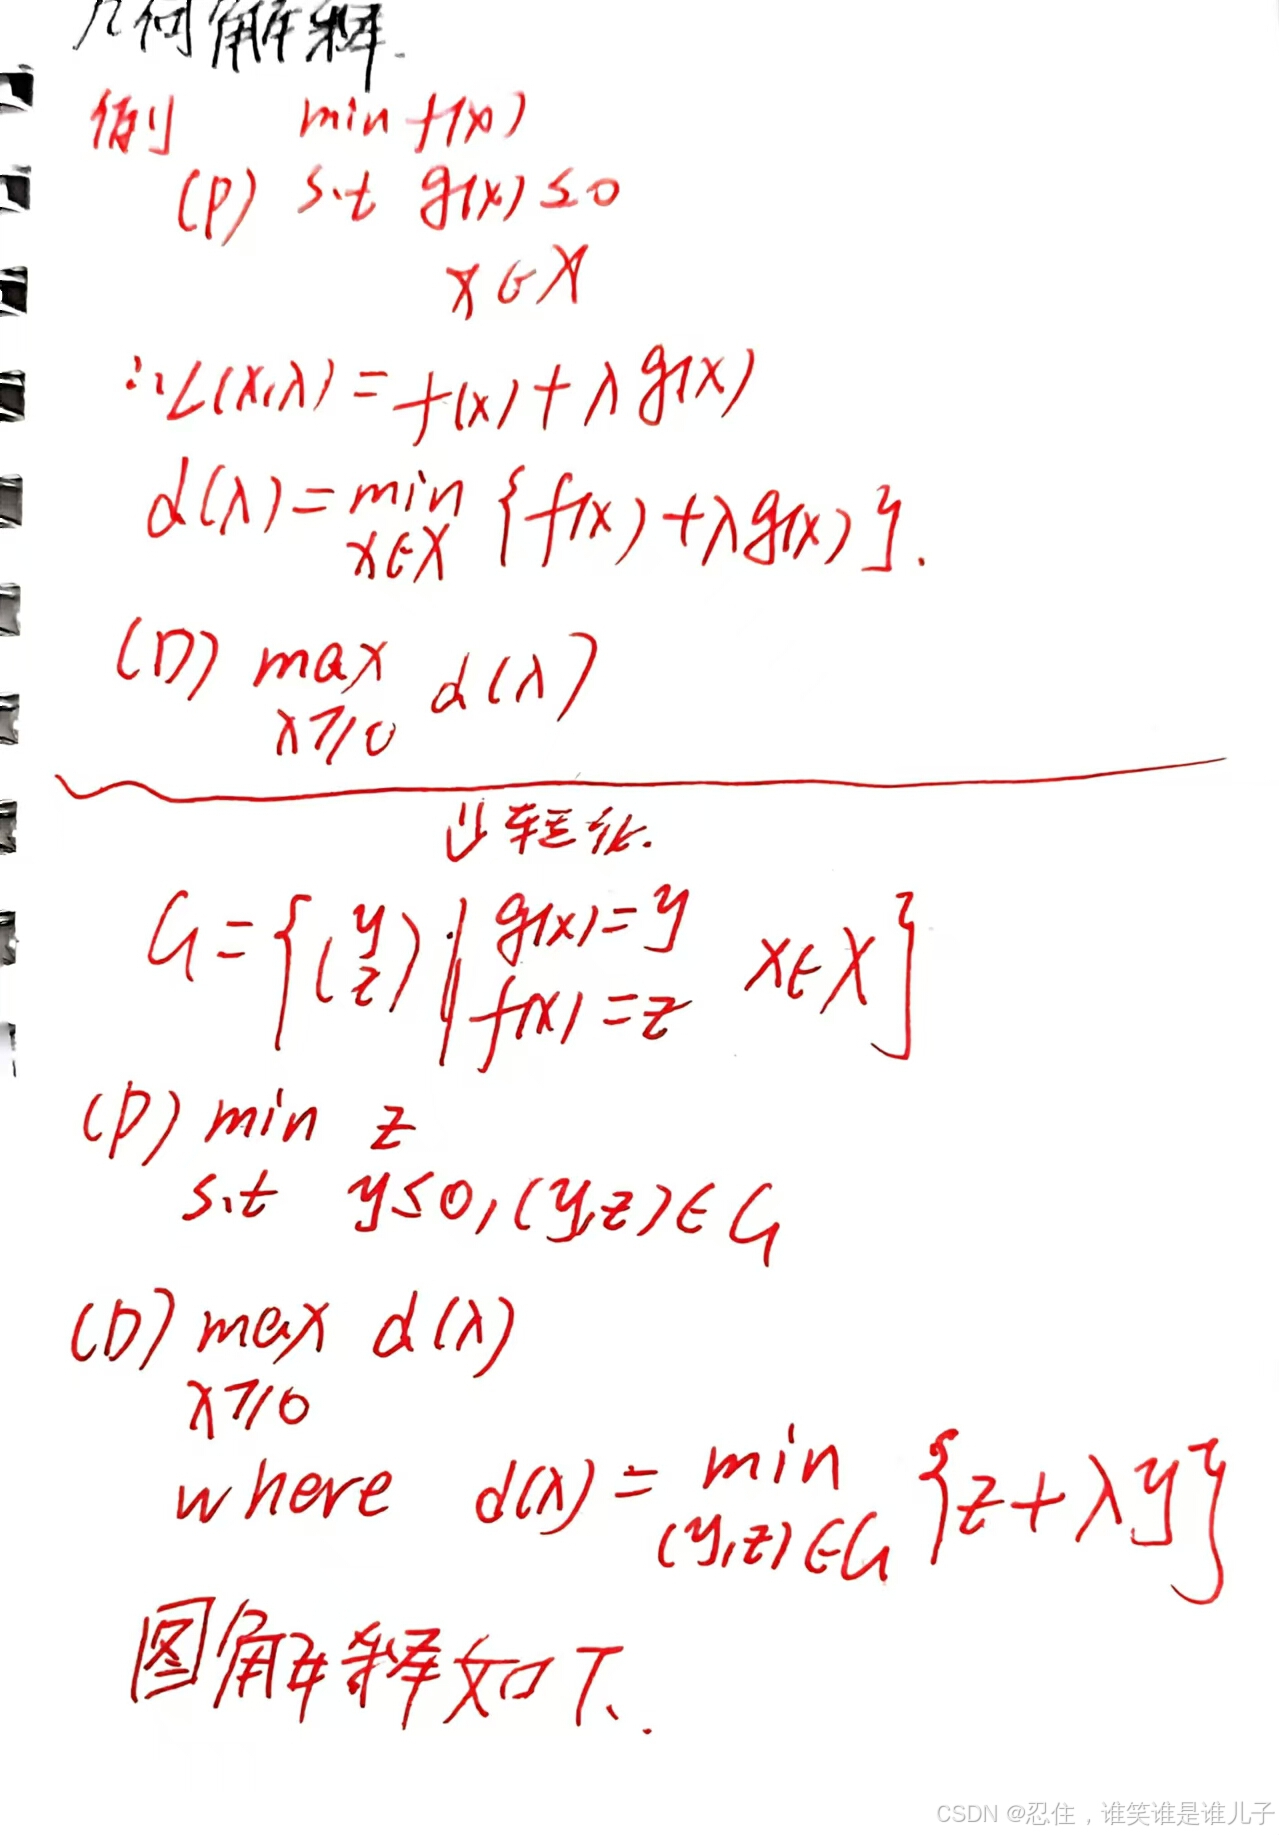 几何解释.
例 min f(x)
(P) s.t g(x)≤0
x∈X
∴L(x,λ)=f(x)+λg(x)
d(λ)=min {f(x)+λg(x)}.
x∈X
(D) max d(λ)
λ≥0
⇓转化.
G={(y z)| g(x)=y x∈X}
f(x)=z
(P) min z
s.t y≤0,(y,z)∈G
(D) max d(λ)
λ≥0
where d(λ)=min {z+λy}
(y,z)∈G
图解释如下.
CSDN @忍住，谁笑谁是谁儿子